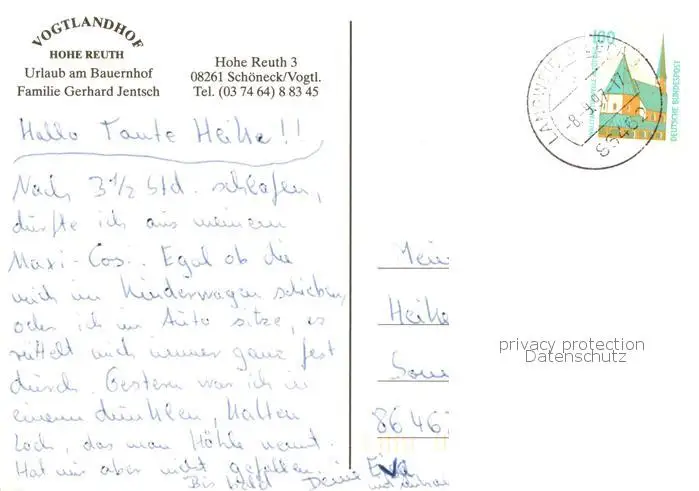 VOGTLANDHOF
HOHE REUTH
Urlaub am Bauernhof
Familie Gerhard Jentsch
Hohe Reuth 3
08261 Schöneck/Vogtl.
Tel. (03 74 64) 8 83 45
Hallo Tante Heike!!
Nach 3 1/2 Std. schlafen,
dürfte ich aus meinem
Maxi-Cosi. Egal ob die
mich im Kinderwagen schieben,
oder ich im Auto sitze, es
rüttelt mich immer ganz fest
durch. Gestern war ich in
einem dunklen, kalten
Loch, das man Höhle nennt.
Hat mir aber nicht gefallen.
Bis bald Deine
Heike
86 46
100
DEUTSCHE BUNDESPOST
privacy protection
Datenschutz